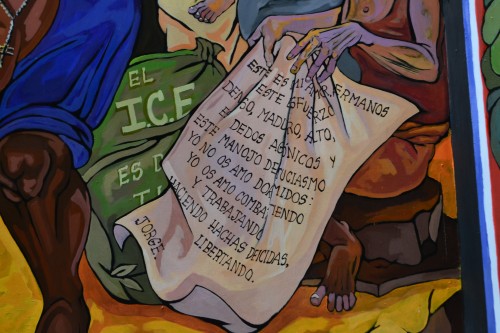 EL
I.C.E
ES D
T
ESTE ES MI AMOR, HERMANOS
ESTE ESFUERZO
DENSO, MADURO, ALTO,
DEDOS AGÓNICOS Y
ESTE MANOJO DE FUCIASMO
YO NO OS AMO DOMIDOS:
YO OS AMO COMBATIENDO
Y TRABAJANDO
HACIENDO HACHAS DEICIDAS,
LIBERTANDO.
JORGE